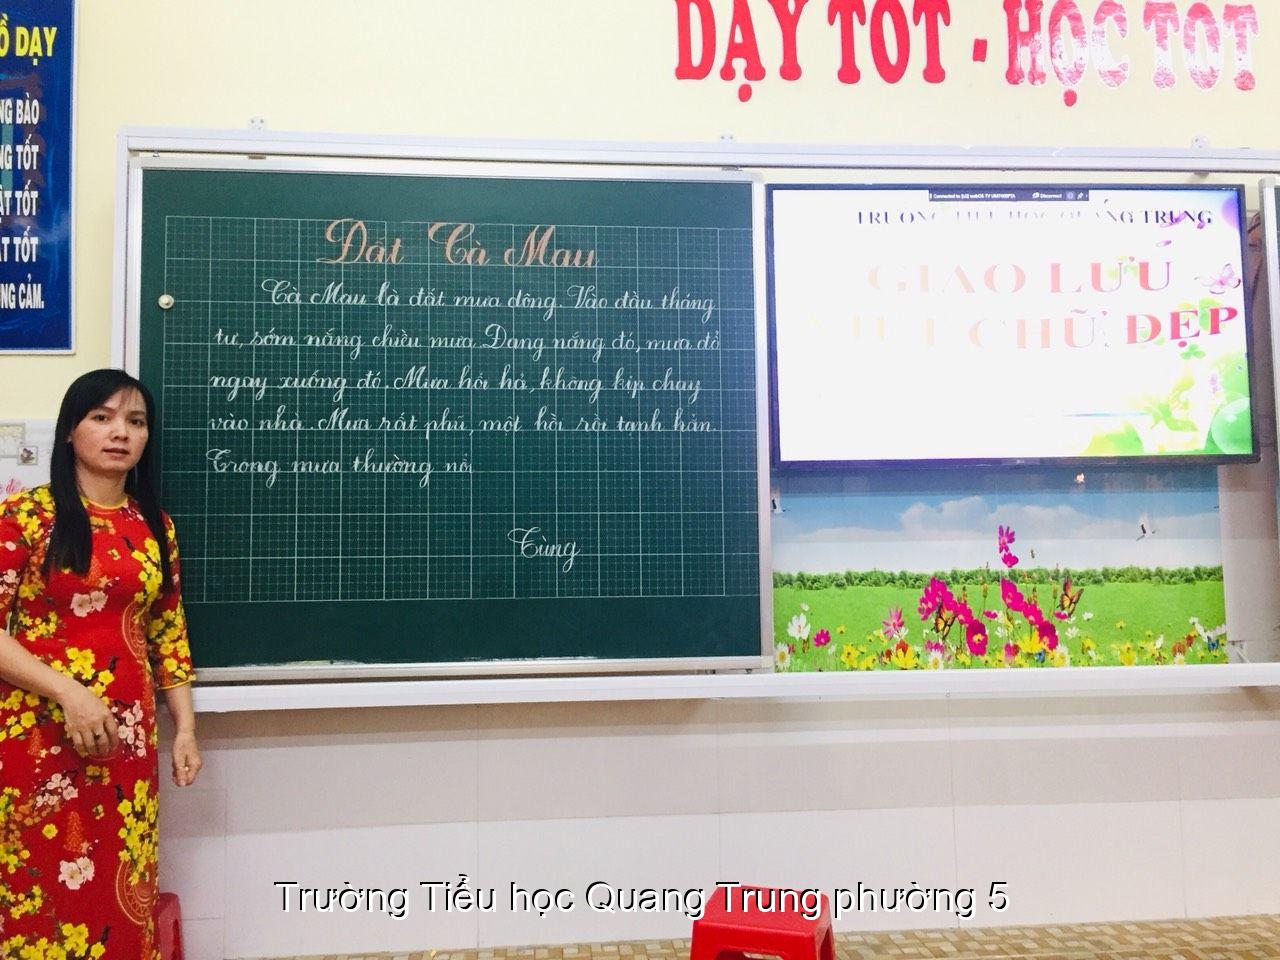 DẠY TỐT - HỌC TỐT
Ồ DẠY
NG BÀO
NG TỐT
ẬT TỐT
ẬT TỐT
NG CẢM.
Đất Cà Mau
Cà Mau là đất mưa dông. Vào đầu tháng
tư, sớm nắng chiều mưa. Đang nắng đó, mưa đổ
ngay xuống đó. Mưa hối hả, không kịp chạy
vào nhà. Mưa rất phũ, một hồi rồi tạnh hẳn.
Trong mưa thường nổi
Tùng
Disconnect
TRƯỜNG TIỂU HỌC QUANG TRUNG
GIAO LƯU
VIẾT CHỮ ĐẸP
Trường Tiểu học Quang Trung phường 5